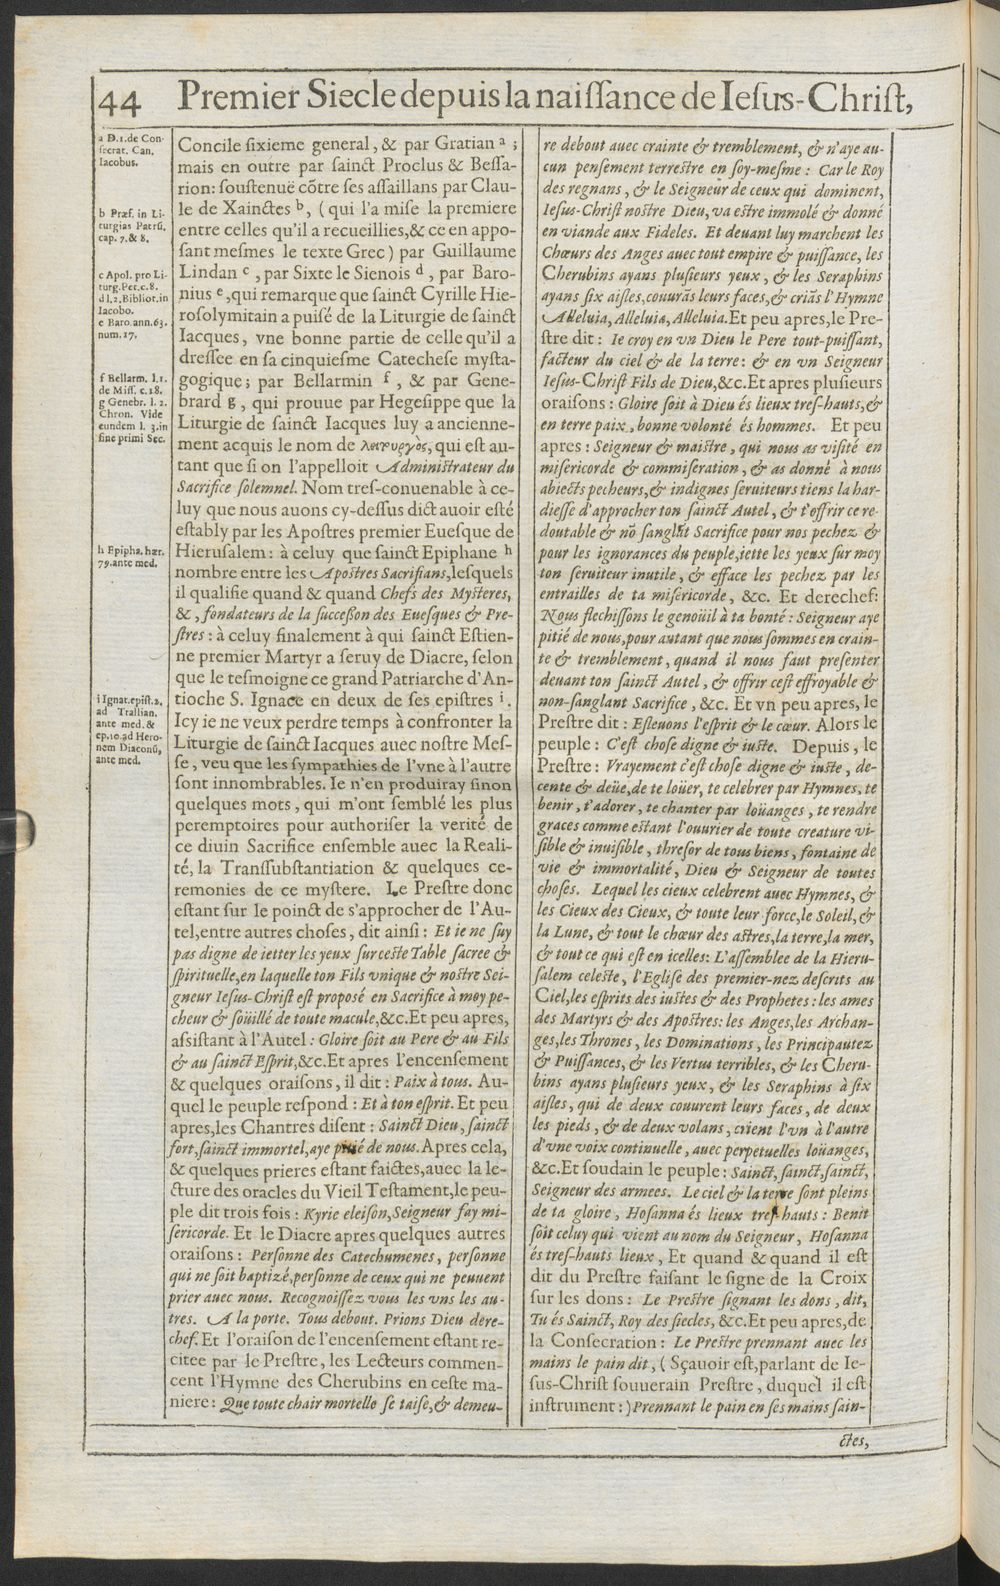 44 Premier Siecle depuis la naissance de Iesus-Christ,
a D.1.de Con-
secrat. Can.
Iacobus.
b Præf. in Li-
turgias Patrū.
cap. 7. & 8.
c Apol. pro Li-
turg. Pet. c. 8.
d l.2. Bibliot. in
Iacobo.
e Baro. ann. 63.
num. 17.
f Bellarm. l. 1.
de Miss. c. 18.
g Genebr. l. 2.
Chron. Vide
eundem l. 3. in
fine primi Sec.
h Epipha. hær.
79. ante med.
i Ignat. epist. 2.
ad Trallian.
ante med. &
ep. 10. ad Hero-
nem Diaconū,
ante med.
Concile sixieme general, & par Gratian a ;
mais en outre par sainct Proclus & Bessa-
rion: soustenuë cõtre ses assaillans par Clau-
le de Xainctes b, (qui l'a mise la premiere
entre celles qu'il a recueillies, & ce en appo-
sant mesmes le texte Grec) par Guillaume
Lindan c, par Sixte le Sienois d, par Baro-
nius e, qui remarque que sainct Cyrille Hie-
rosolymitain a puisé de la Liturgie de sainct
Iacques, vne bonne partie de celle qu'il a
dressee en sa cinquiesme Catechese mysta-
gogique; par Bellarmin f, & par Gene-
brard g, qui prouue par Hegesippe que la
Liturgie de sainct Iacques luy a ancienne-
ment acquis le nom de λειτουργὸς, qui est au-
tant que si on l'appelloit Administrateur du
Sacrifice solemnel. Nom tres-conuenable à ce-
luy que nous auons cy-dessus dict auoir esté
estably par les Apostres premier Euesque de
Hierusalem: à celuy que sainct Epiphane h
nombre entre les Apostres Sacrifians, lesquels
il qualifie quand & quand Chefs des Mysteres,
&, fondateurs de la successon des Euesques & Pre-
stres: à celuy finalement à qui sainct Estien-
ne premier Martyr a seruy de Diacre, selon
que le tesmoigne ce grand Patriarche d'An-
tioche S. Ignace en deux de ses epistres i.
Icy ie ne veux perdre temps à confronter la
Liturgie de sainct Iacques auec nostre Mes-
se, veu que les sympathies de l'vne à l'autre
sont innombrables. Ie n'en produiray sinon
quelques mots, qui m'ont semblé les plus
peremptoires pour authoriser la verité de
ce diuin Sacrifice ensemble auec la Reali-
té, la Transsubstantiation & quelques ce-
remonies de ce mystere. Le Prestre donc
estant sur le poinct de s'approcher de l'Au-
tel, entre autres choses, dit ainsi: Et ie ne suy
pas digne de ietter les yeux sur ceste Table sacree &
spirituelle, en laquelle ton Fils vnique & nostre Sei-
gneur Iesus-Christ est proposé en Sacrifice à moy pe-
cheur & soüillé de toute macule, &c. Et peu apres,
assistant à l'Autel: Gloire soit au Pere & au Fils
& au sainct Esprit, &c. Et apres l'encensement
& quelques oraisons, il dit: Paix à tous. Au-
quel le peuple respond: Et à ton esprit. Et peu
apres, les Chantres disent: Sainct Dieu, sainct
fort, sainct immortel, aye pitié de nous. Apres cela,
& quelques prieres estant faictes, auec la le-
cture des oracles du Vieil Testament, le peu-
ple dit trois fois: Kyrie eleison, Seigneur fay mi-
sericorde. Et le Diacre apres quelques autres
oraisons: Personne des Catechumenes, personne
qui ne soit baptizé, personne de ceux qui ne peuuent
prier auec nous. Recognoissez vous les vns les au-
tres. A la porte. Tous debout. Prions Dieu dere-
chef. Et l'oraison de l'encensement estant re-
citee par le Prestre, les Lecteurs commen-
cent l'Hymne des Cherubins en ceste ma-
niere: Que toute chair mortelle se taise, & demeu-
re debout auec crainte & tremblement, & n'aye au-
cun pensement terrestre en soy-mesme: Car le Roy
des regnans, & le Seigneur de ceux qui dominent,
Iesus-Christ nostre Dieu, va estre immolé & donné
en viande aux Fideles. Et deuant luy marchent les
Chœurs des Anges auec tout empire & puissance, les
Cherubins ayans plusieurs yeux, & les Seraphins
ayans six aisles, couurãs leurs faces, & criãs l'Hymne
Alleluia, Alleluia, Alleluia. Et peu apres, le Pre-
stre dit: Ie croy en vn Dieu le Pere tout-puissant,
facteur du ciel & de la terre: & en vn Seigneur
Iesus-Christ Fils de Dieu, &c. Et apres plusieurs
oraisons: Gloire soit à Dieu és lieux tres-hauts, &
en terre paix, bonne volonté és hommes. Et peu
apres: Seigneur & maistre, qui nous as visité en
misericorde & commiseration, & as donné à nous
abiects pecheurs, & indignes seruiteurs tiens la har-
diesse d'approcher ton sainct Autel, & t'offrir ce re-
doutable & nõ sanglãt Sacrifice pour nos pechez &
pour les ignorances du peuple, iette les yeux sur moy
ton seruiteur inutile, & efface les pechez par les
entrailles de ta misericorde, &c. Et derechef:
Nous flechissons le genoüil à ta bonté: Seigneur aye
pitié de nous, pour autant que nous sommes en crain-
te & tremblement, quand il nous faut presenter
deuant ton sainct Autel, & offrir cest effroyable &
non-sanglant Sacrifice, &c. Et vn peu apres, le
Prestre dit: Esleuons l'esprit & le cœur. Alors le
peuple: C'est chose digne & iuste. Depuis, le
Prestre: Vrayement c'est chose digne & iuste, de-
cente & deüe, de te loüer, te celebrer par Hymnes, te
benir, t'adorer, te chanter par loüanges, te rendre
graces comme estant l'ouurier de toute creature vi-
sible & inuisible, thresor de tous biens, fontaine de
vie & immortalité, Dieu & Seigneur de toutes
choses. Lequel les cieux celebrent auec Hymnes, &
les Cieux des Cieux, & toute leur force, le Soleil, &
la Lune, & tout le chœur des astres, la terre, la mer,
& tout ce qui est en icelles: L'assemblee de la Hieru-
salem celeste, l'Eglise des premier-nez descrits au
Ciel, les esprits des iustes & des Prophetes: les ames
des Martyrs & des Apostres: les Anges, les Archan-
ges, les Thrones, les Dominations, les Principautez
& Puissances, & les Vertus terribles, & les Cheru-
bins ayans plusieurs yeux, & les Seraphins à six
aisles, qui de deux couurent leurs faces, de deux
les pieds, & de deux volans, crient l'vn à l'autre
d'vne voix continuelle, auec perpetuelles loüanges,
&c. Et soudain le peuple: Sainct, sainct, sainct,
Seigneur des armees. Le ciel & la terre sont pleins
de ta gloire, Hosanna és lieux tres-hauts: Benit
soit celuy qui vient au nom du Seigneur, Hosanna
és tres-hauts lieux, Et quand & quand il est
dit du Prestre faisant le signe de la Croix
sur les dons: Le Prestre signant les dons, dit,
Tu és Sainct, Roy des siecles, &c. Et peu apres, de
la Consecration: Le Prestre prennant auec les
mains le pain dit, (Sçauoir est, parlant de Ie-
sus-Christ souuerain Prestre, duquel il est
instrument:) Prennant le pain en ses mains sain-
ctes,